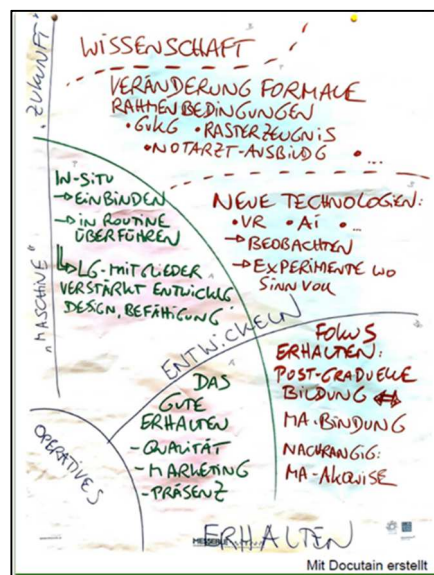 "ZUKUNFT"
WISSENSCHAFT
VERÄNDERUNG FORMALE
RAHMENBEDINGUNGEN
• GUKG • RASTERZEUGNIS
• NOTARZT-AUSBILDG • ...
IN-SITU
→ EINBINDEN
→ IN ROUTINE
ÜBERFÜHREN
↳ LG-MITGLIEDER
VERSTÄRKT ENTWICKLG
DESIGN, BEFÄHIGUNG
NEUE TECHNOLOGIEN:
• VR • AI • ...
→ BEOBACHTEN
→ EXPERIMENTE WO
SINNVOLL
"MASCHINE"
ENTWICKELN
FOKUS
ERHALTEN:
POST-GRADUELLE
BILDUNG ⇔
MA-BINDUNG
NACHRANGIG:
MA-AKQUISE
DAS
GUTE
ERHALTEN
- QUALITÄT
- MARKETING
- PRÄSENZ
OPERATIVES
ERHALTEN
Mit Docutain erstellt